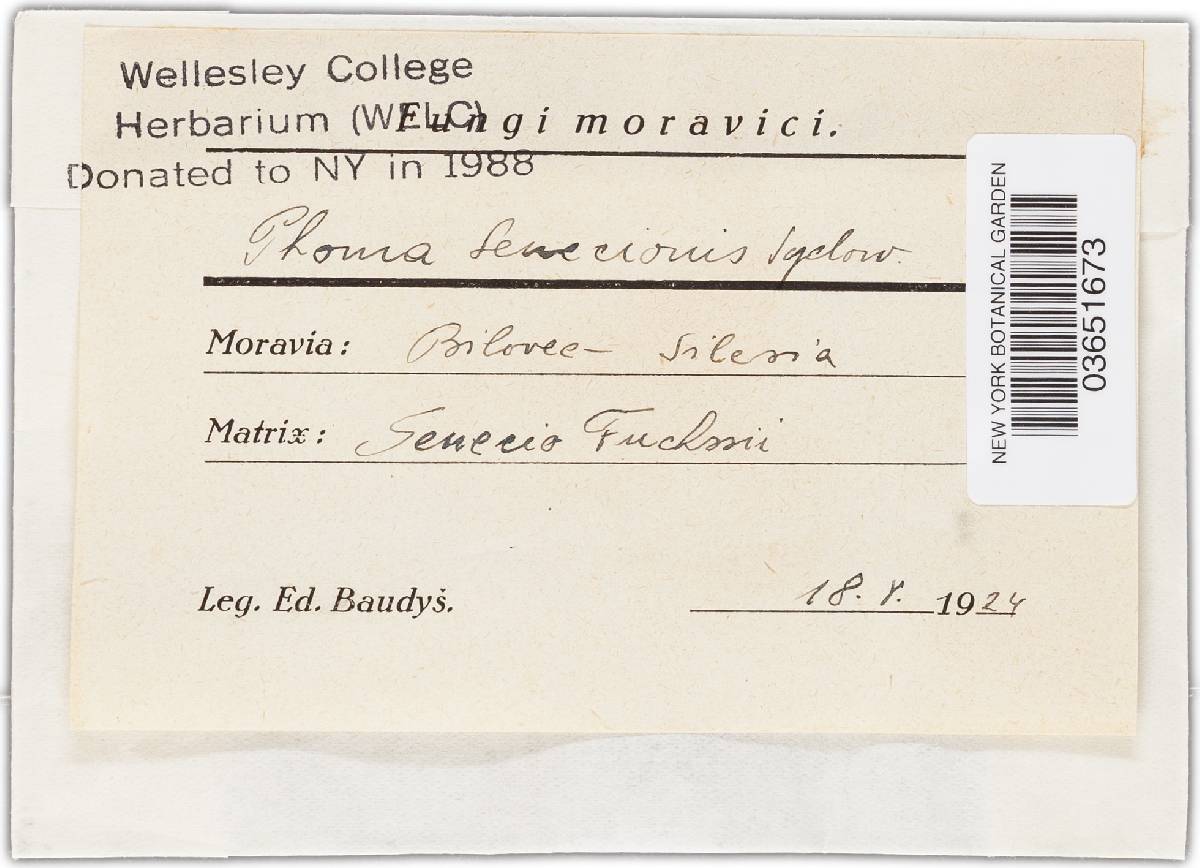 Wellesley College
Herbarium (WELC)
Donated to NY in 1988
Fungi moravici.
Phoma Senecionis Sydow.
Moravia: Bilovec - Silesia
Matrix: Senecio Fuchsii
Leg. Ed. Baudyš.
18. V. 1924
NEW YORK BOTANICAL GARDEN
03651673